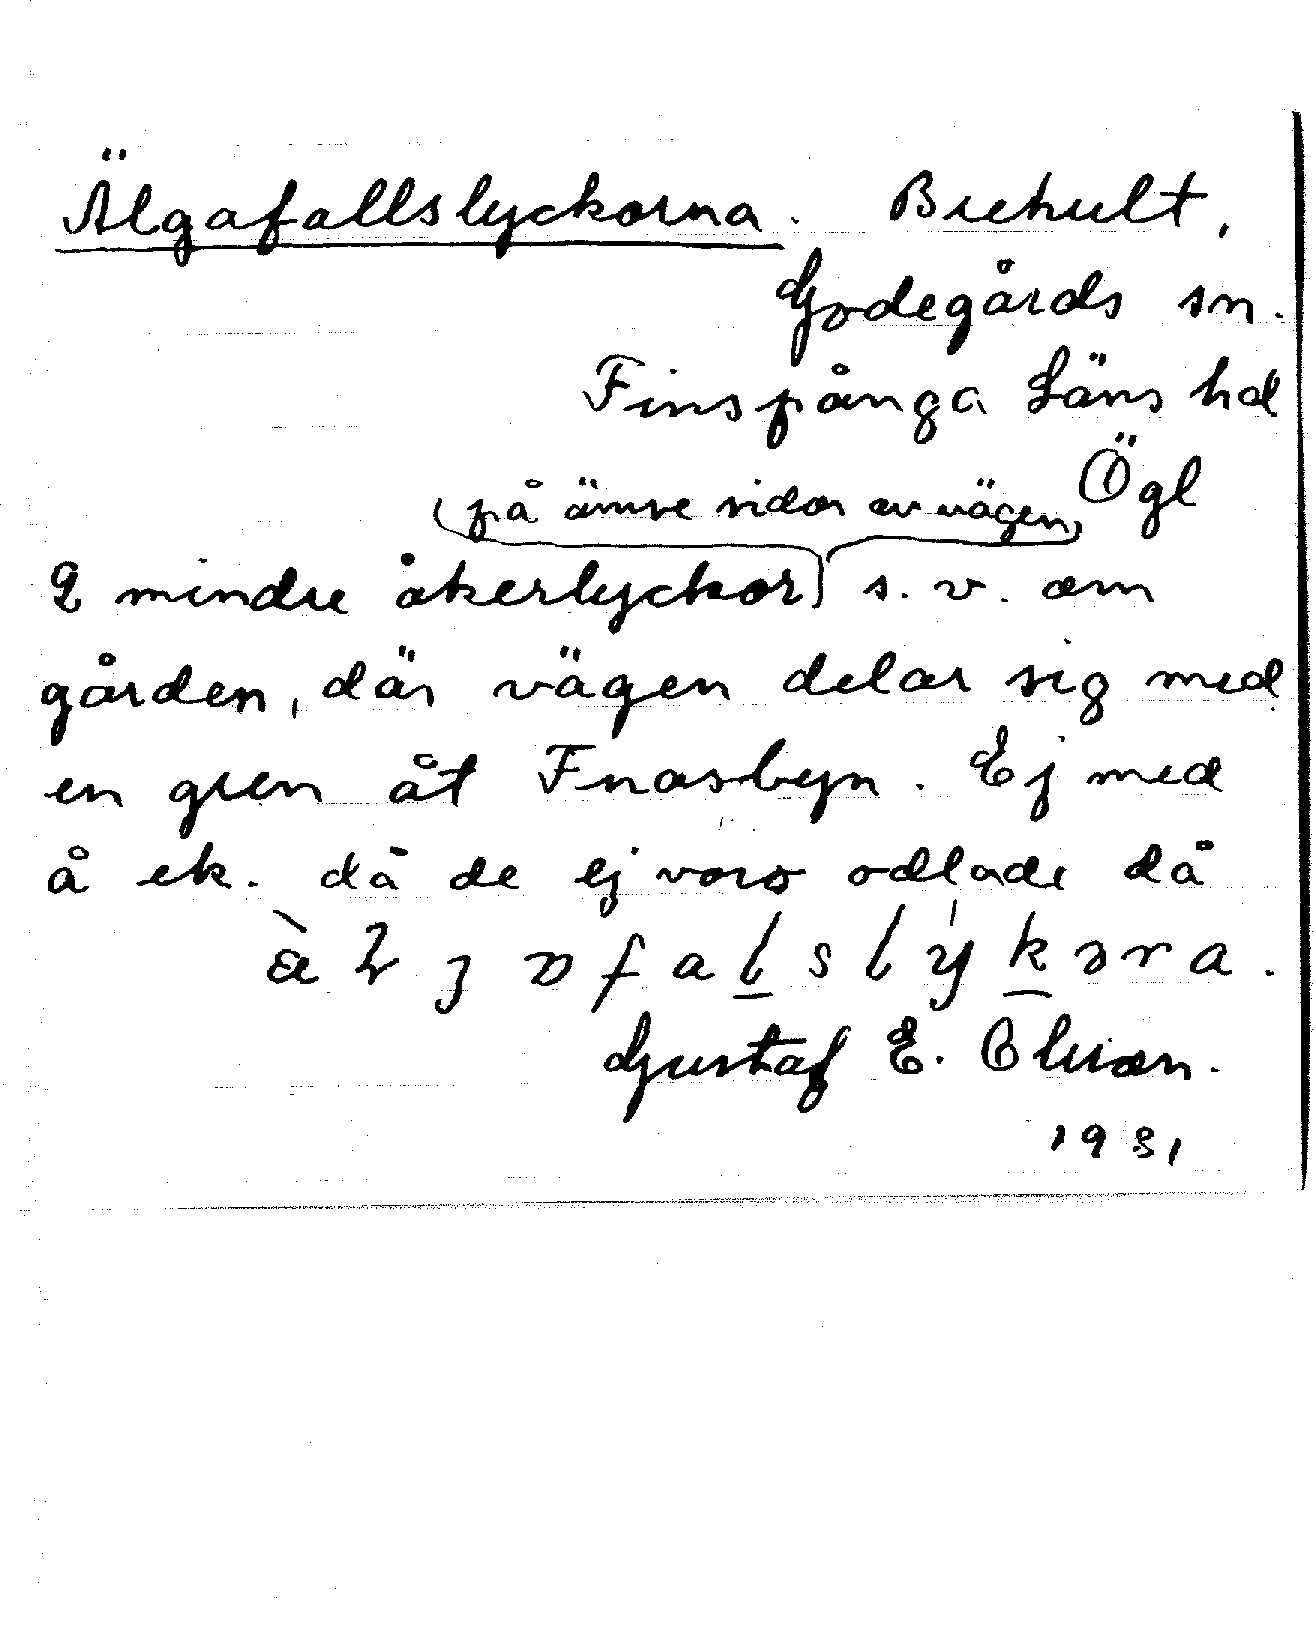 Älgafallslyckorna. Brehult,
Godegårds sn.
Finspånga Läns hd
Ögl
(på ömse sidor av vägen)
2 mindre åkerlyckor s. v. om
gården, där vägen delar sig med
en gren åt Fnasbyn. Ej med
å ek. då de ej voro odlade då
Gustaf E. Olsson.
1931